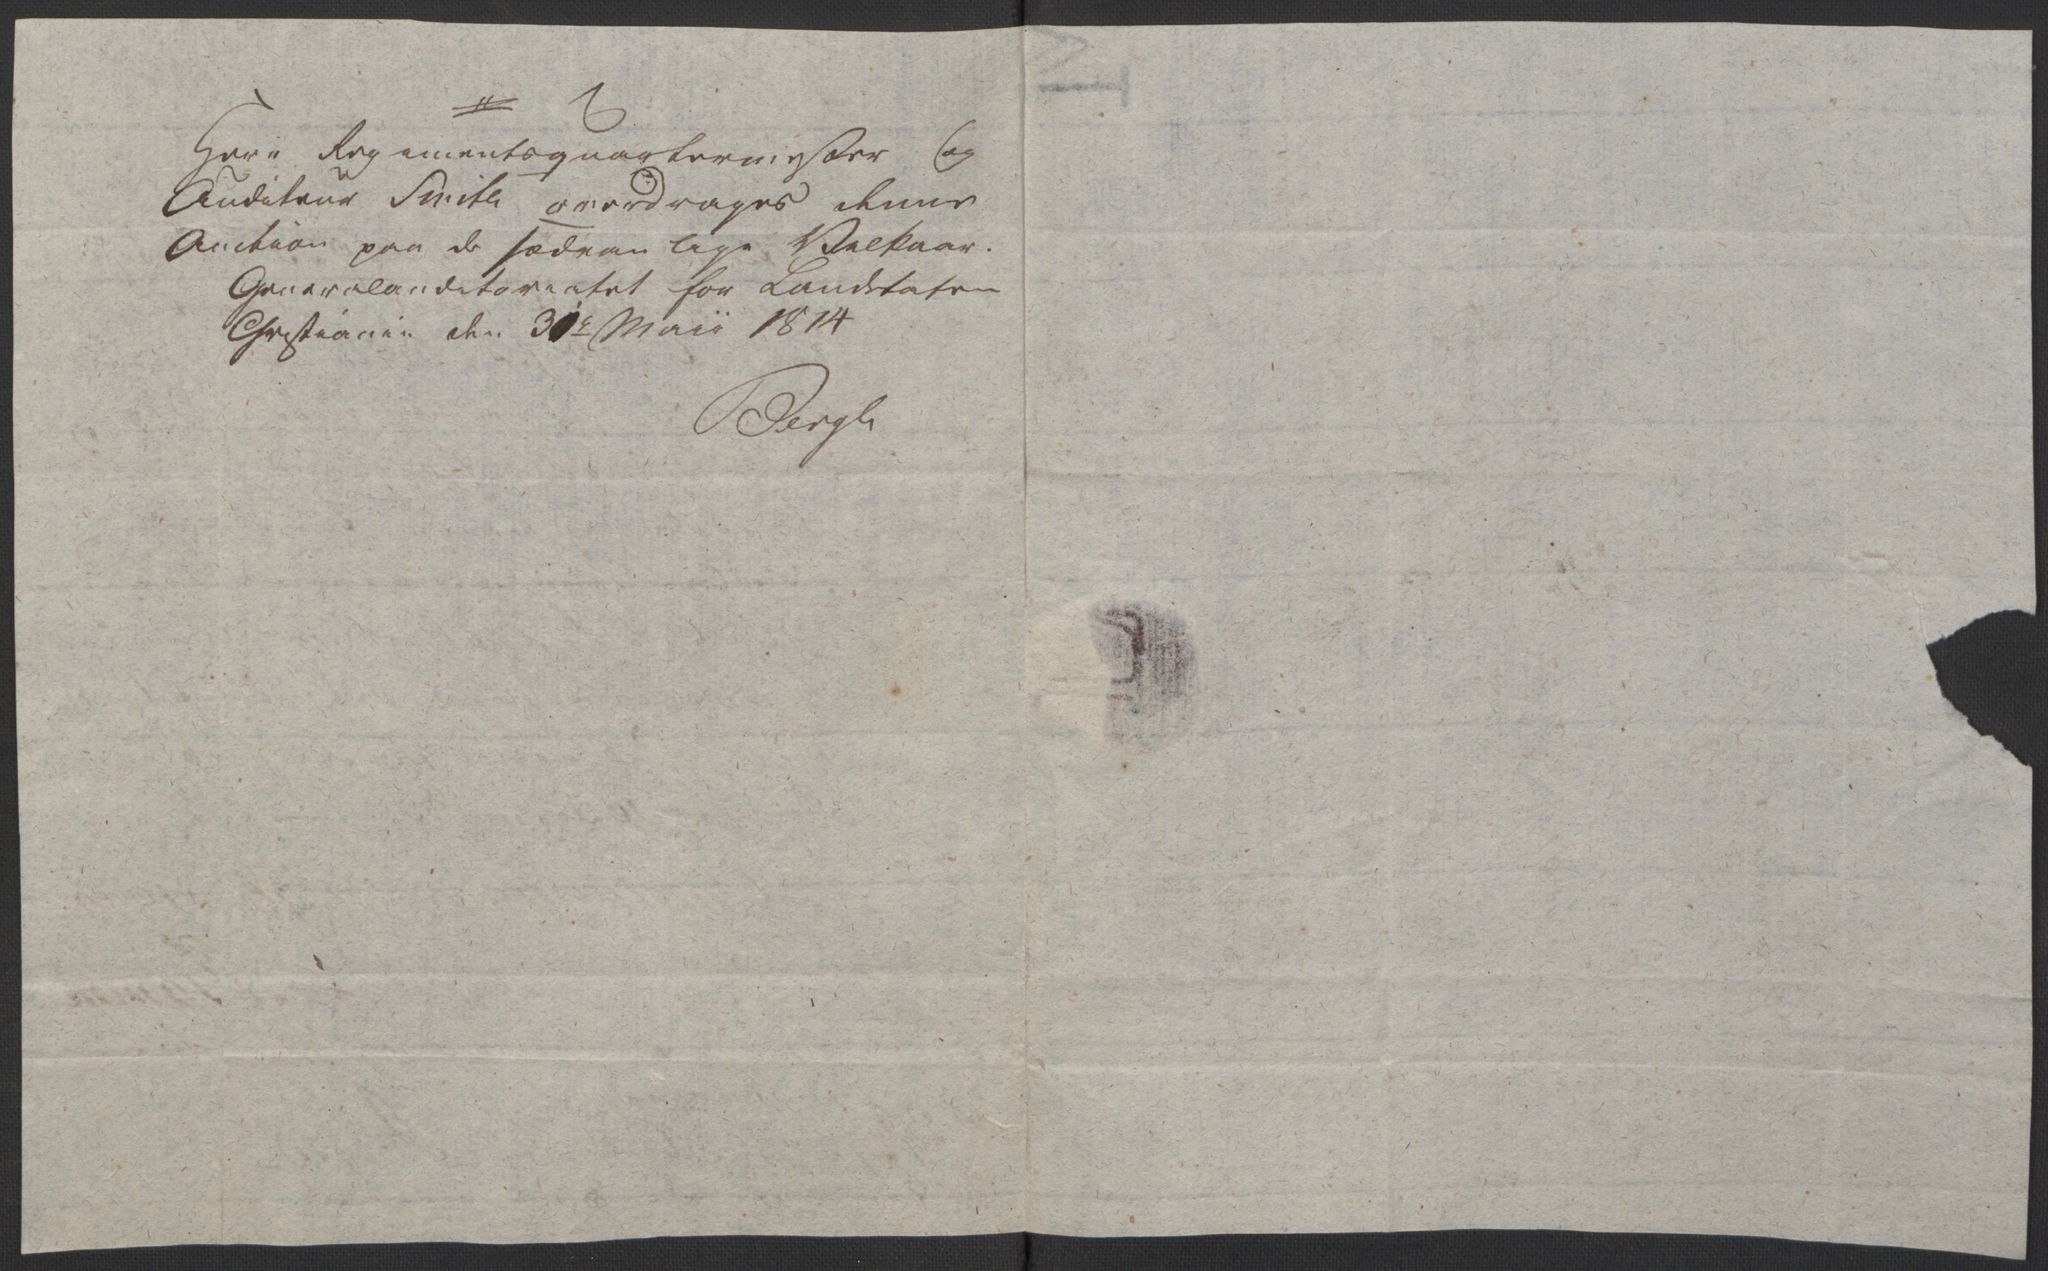 Herr Regimentsquartermester og
Auditeur Smith overdrages denne
Auction paa de sædvanlige Vilkaar.
Generalauditoriatet for Landetaten
Christiania den 31te Maii 1814
Bergh